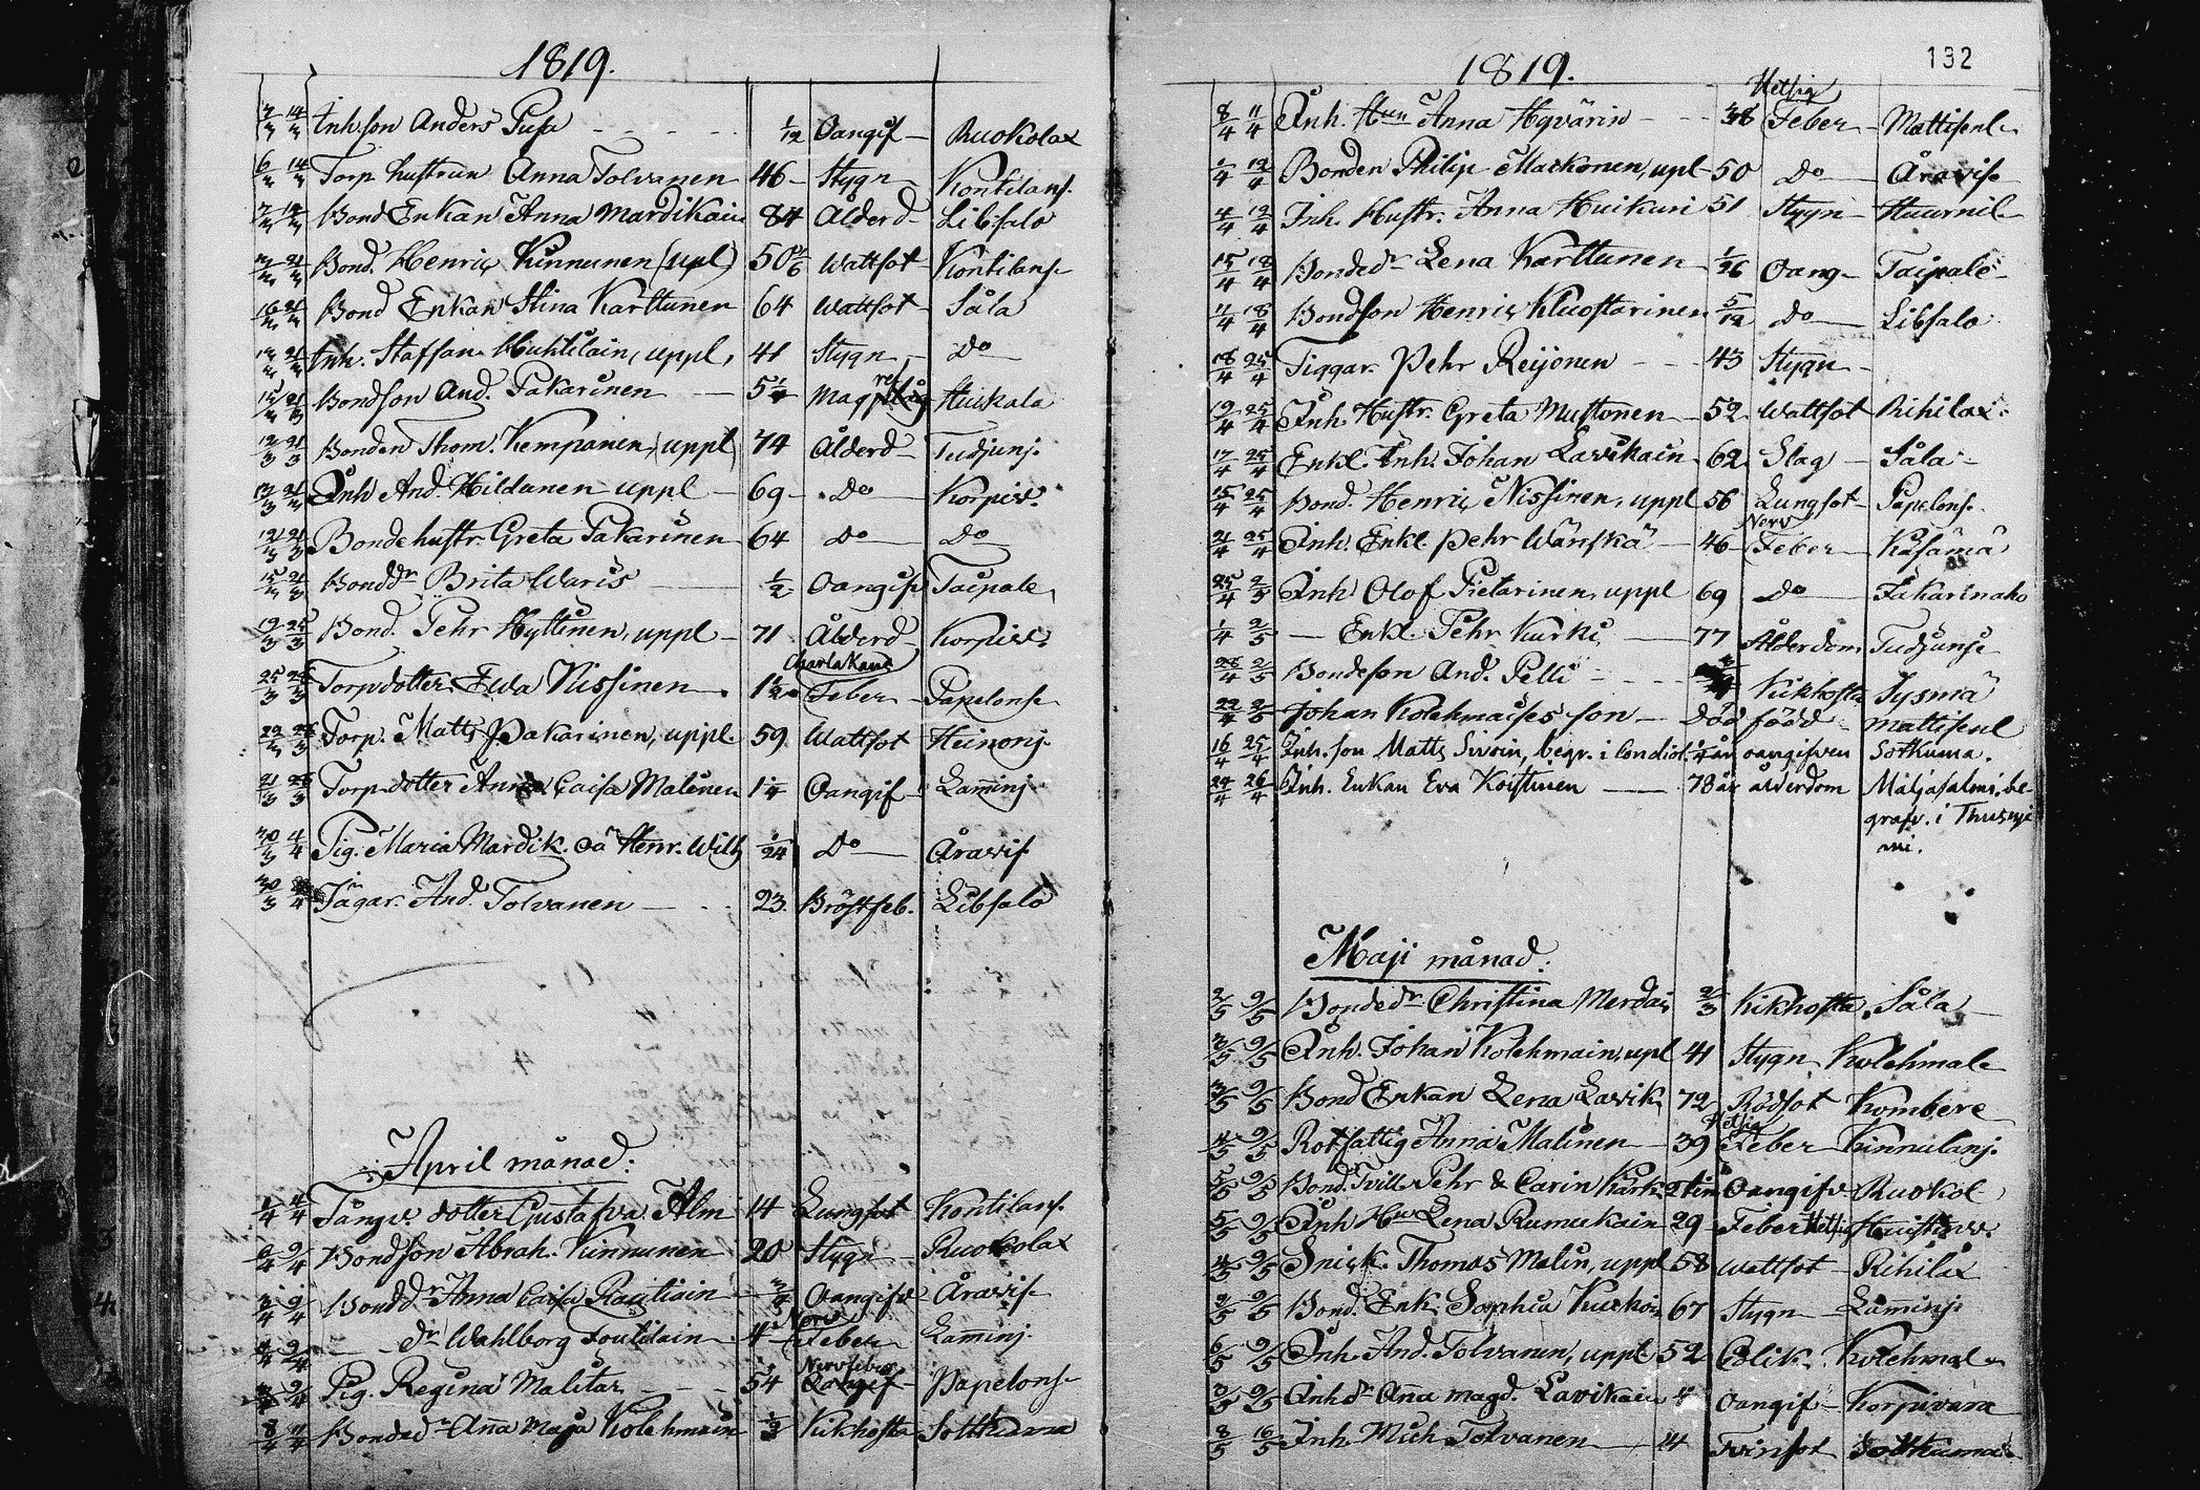 1819.
7/3 14/3 Inh. son Anders Pusa 1/12 Oangif Ruokolax
6/3 14/3 Torp hustrun Anna Tolvanen 46 Stygn Kontilans.
7/3 14/3 Bond Enkan Anna Mardikain 84 Ålderd Libsalo
21/3 Bond. Henric Kinnunen (upl) 50 1/6 Wattsot Kontilans.
16/3 21/3 Bond Enkan Stina Karttunen 64 Wattsot Såla
21/3 Inh. Staffan Huktilain, uppl, 41 Stygn Do
15/3 21/3 Bondson And. Pakarinen 5 1/4 Mag Huikala
12/3 21/3 Bonden Thom. Kempanen, (uppl) 74 Ålderd Tudjunj.
13/3 21/3 Inh And. Hildanen uppl 69 Do Korpiv.
12/3 21/3 Bonde hustr. Greta Pakarinen 64 Do Do
15/3 21/3 Bonddr Brita Waris 1/2 Oangif Taipale
19/3 25/3 Bond. Pehr Hyttinen, uppl 71 Ålderd Korpiv.
25/3 28/3 Torpdotter Ewa Nissinen 1 1/2 Charlakans Feber Papelons
22/3 28/3 Torp. Matts Pakarinen, uppl. 59 Wattsot Heinonj.
21/3 28/3 Torp dotter Anna Caisa Malinen 1 1/4 Oangif Laminj
30/3 4/4 Pig. Maria Mardik. oä Henr. Wilh 1/24 Do Åravis
30/3 4/4 Jägar. And. Tolvanen 23 Bröstfeb. Libsalo
April månad:
1/4 4/4 Fångv. dotter Gustafva Alm 14 Lungsot Kontilans.
6/4 9/4 Bondson Abrah. Kinnunen 20 Stygn Ruokolax
3/4 9/4 Bonddr Anna Caisa Rautiain 3/4 Oangifv Åravis
4/4 9/4 dr Wahlborg Toulilain 4 Nerv Feber Laminj.
9/4 Pig. Regina Malitar 54 Nervfeber Papelons
8/4 11/4 Bonded Aña Maja Kolehmain 1/3 Kikhosta Sottkuma
1819. 132
8/4 11/4 Inh. Hun Anna Hyvärin 38 Hetsig Feber Mattisenl
1/4 12/4 Bonden Philip Markonen, upl 50 Do Åravis
4/4 12/4 Inh. Hustr. Anna Huikuri 51 Stygn
15/4 18/4 Bondedr Lena Karttunen 1/26 Oang Taipale
11/4 18/4 Bondson Henric Kluostarinen 5/12 Do Libsalo
18/4 25/4 Tiggar. Pehr Reijonen 43 Stygn
19/4 25/4 Inh. Hustr. Greta Mustonen 52 Wattsot Rihilax
17/4 25/4 Enkl. Inh. Johan Lavikain 62 Slag Såla
15/4 25/4 Bond. Henric Nissinen, uppl 56 Lungsot Papelons.
21/4 25/4 Inh. Enkl. Pehr Wänskä 46 Nerv Feber Käsämä
25/4 2/5 Inh Olof Pietarinen, uppl 69 Do Jakarinaho
1/4 2/5 Enkl. Pehr Kurki 77 Ålderdom Tudjunj
28/4 2/5 Bondeson And. Pelli Kikhosta Sysmä
22/4 2/5 Johan Kolehmaises son död född Mattisenl
16/4 25/4 Inh. son Matts Sivoin, begr. i 1/4 år oangifven Sotkuma.
24/4 26/4 Inh. Enkan Eva Koistinen 78 år ålderdom Maljasalmi, be-
grafv. i Thusnje
mi.
Maji månad:
2/5 9/5 Bondedr Christina Merdain 2/3 Kikhosta Såla
3/5 9/5 Inh. Johan Kolehmain, upl 41 Stygn Kolehmale
3/5 9/5 Bond Enkan Lena Lavik. 72 Rödsot Kombere
4/5 9/5 Rotfattig Anna Malinen 39 Hetsig Feber Kinnulanj.
5/5 9/5 Bond. Tvill. Pehr & Carin Kärk. 2 tim Oangifv Ruokol
5/5 9/5 Inh Hu Lena Rumukain 29 Feber Hetsig
4/5 9/5 Snick. Thomas Malin, uppl 58 Wattsot Rihilax
2/5 9/5 Bond. Enk. Sophia Kurkoin 67 Stygn Laminj
6/5 9/5 Inh. And. Tolvanen, uppl. 52 Colik. Kolehmal
3/5 9/5 Inh dr Aña Magd. Lavikain 4 Oangif Korpivara
8/5 16/5 Inh. Mich Tolvanen 14 Tvinsot Sottkuma